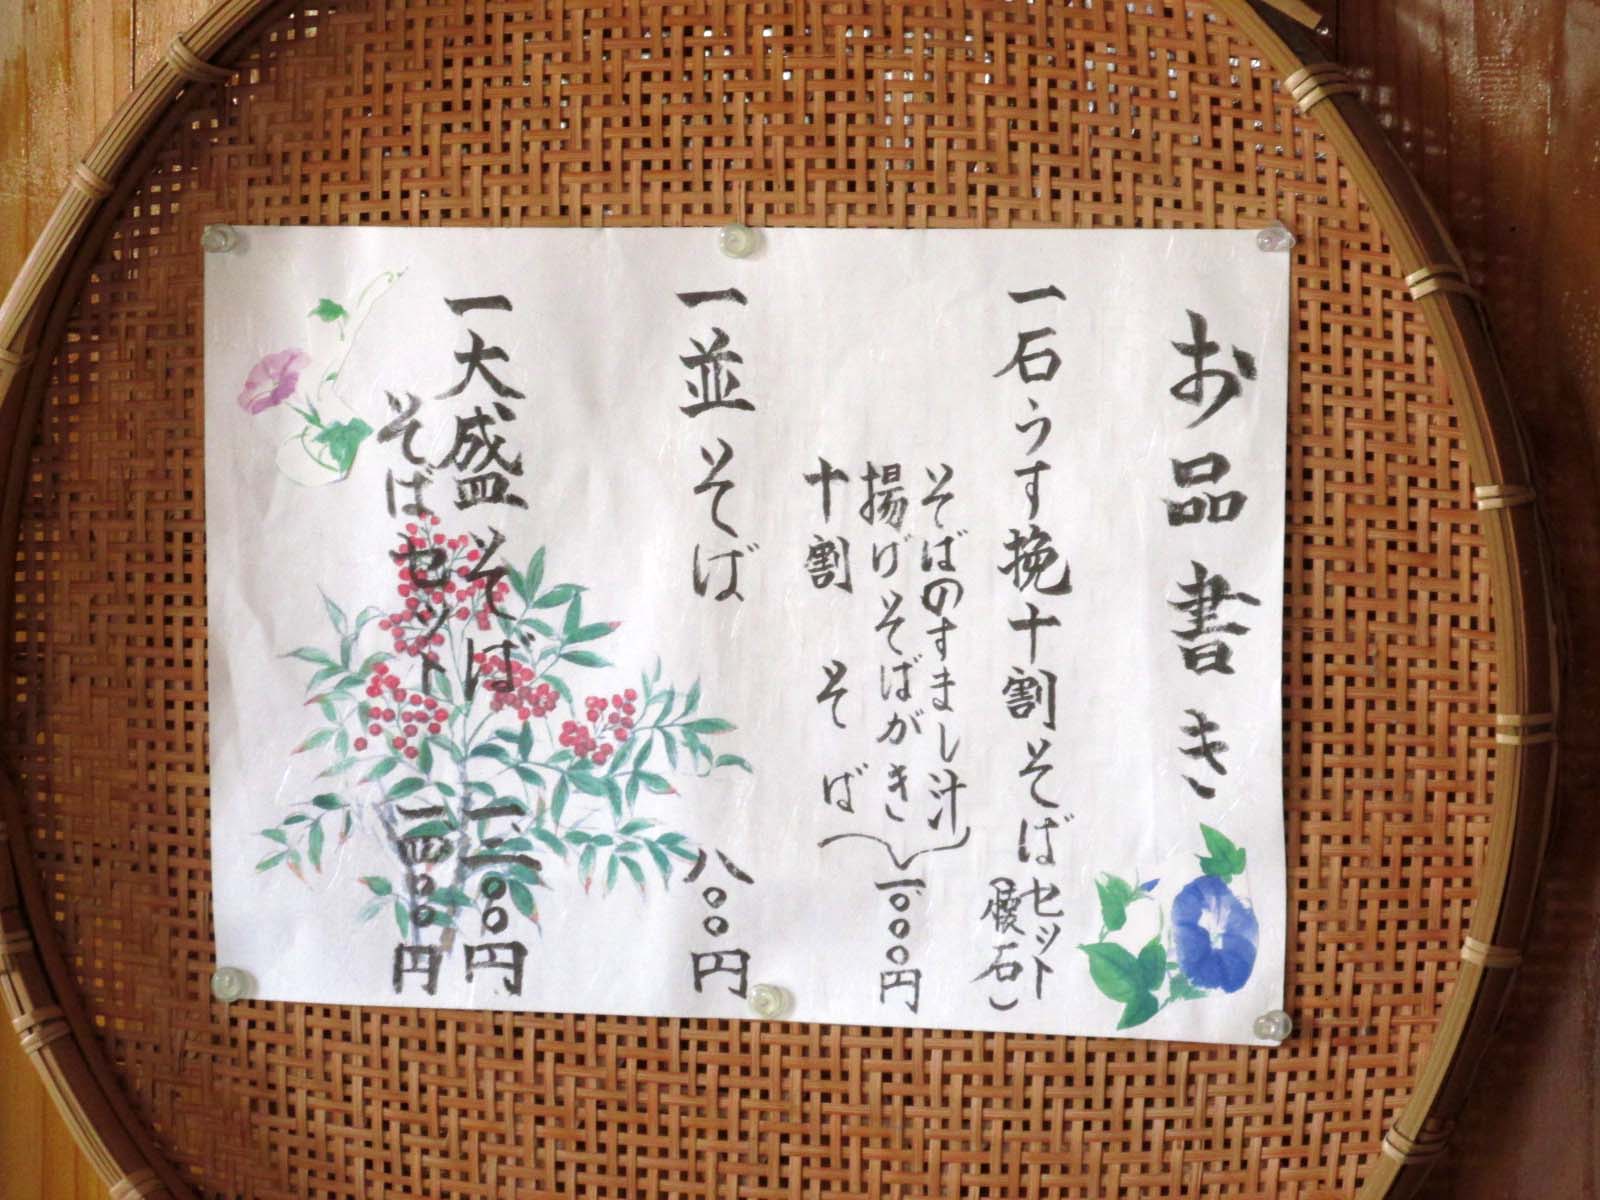 お品書き
一石うす挽十割そばセット
(懐石)
そばのすまし汁
揚げそばがき
十割そば
一、〇〇〇円
一並そば 八〇〇円
一大盛そば 一、二〇〇円
そばセット 一、四〇〇円